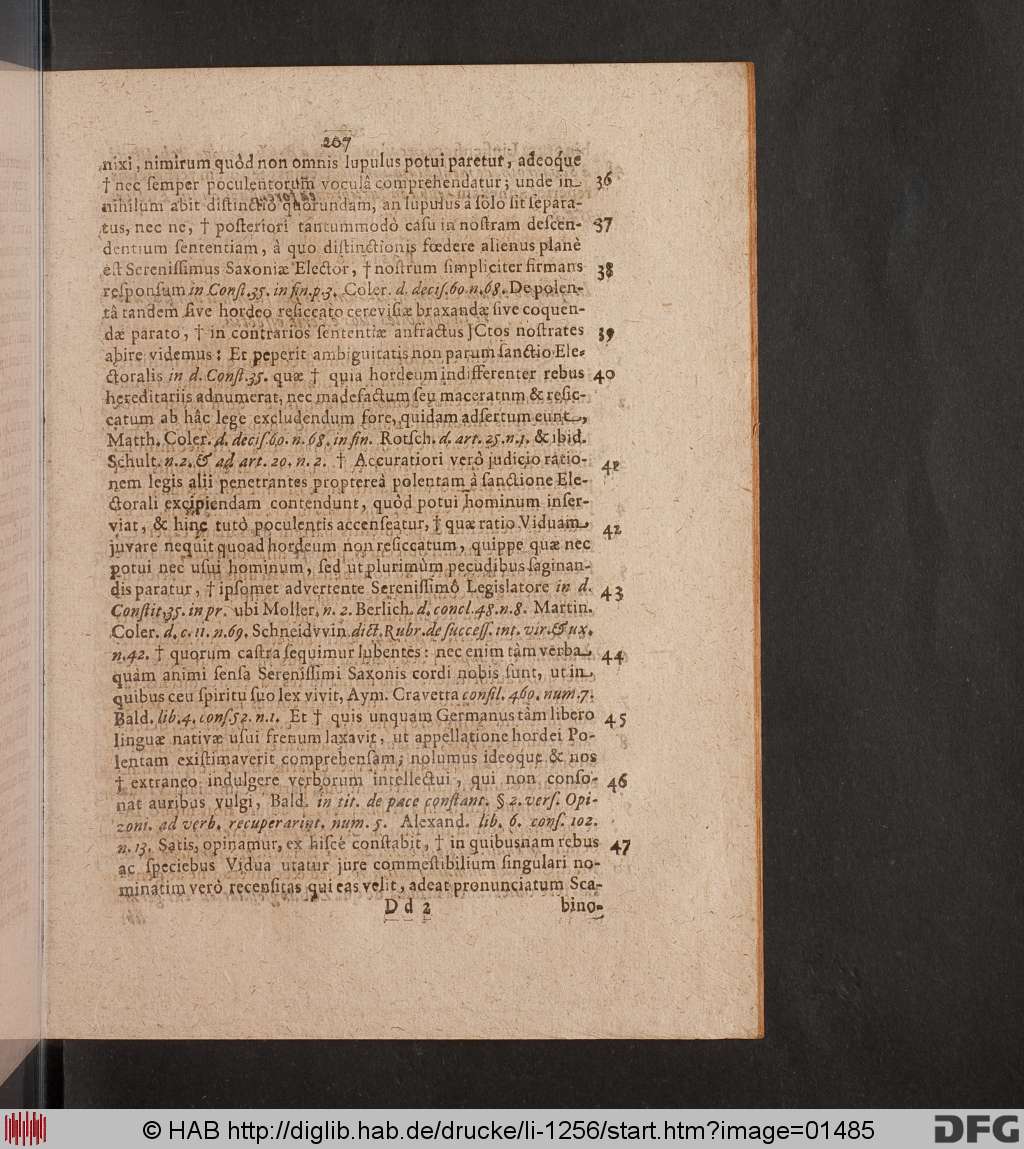 207
nixi, nimirum quòd non omnis lupulus potui paretur, adeoque
† nec semper poculentorum voculâ comprehendatur; unde in- 36
nihilum abit distinctio quorundam, an lupulus à solo sit separa-
tus, nec ne, † posteriori tantummodò casu in nostram descen- 37
dentium sententiam, à quo distinctionis fœdere alienus planè
est Serenissimus Saxoniæ Elector, † nostrum simpliciter firmans 38
responsum in Const. 35. in fin. p. 3. Coler. d. decis. 60 n. 68. De polen-
tâ tandem sive hordeo resiccato cerevisiæ braxandæ sive coquen-
dæ parato, † in contrarios sententiæ anfractus JCtos nostrates 39
abire videmus: Et peperit ambiguitatis non parum sanctio Ele-
ctoralis in d. Const. 35. quæ † quia hordeum indifferenter rebus 40
hereditariis adnumerat, nec madefactum seu maceratum & resic-
catum ab hâc lege excludendum fore, quidam adsertum eunt,
Matth. Coler. d. decis. 60. n. 68. in fin. Rotsch. d. art. 25. n. 1. & ibid.
Schult. n. 2. & ad art. 20. n. 2. † Accuratiori verò judicio ratio- 41
nem legis alii penetrantes propterea polentam à sanctione Ele-
ctorali excipiendam contendunt, quòd potui hominum inser-
viat, & hinc tutò poculentis accenseatur, † quæ ratio Viduam 42
juvare nequit quoad hordeum non resiccatum, quippe quæ nec
potui nec usui hominum, sed ut plurimùm pecudibus saginan-
dis paratur, † ipsomet advertente Serenissimô Legislatore in d. 43
Constit. 35. in pr. ubi Moller. n. 2. Berlich. d. concl. 48. n. 8. Martin.
Coler. d. c. 11. n. 69. Schneidvvin. dict. Rubr. de success. int. vir. & ux.
n. 42. † quorum castra sequimur lubentes: nec enim tàm verba, 44
quàm animi sensa Serenissimi Saxonis cordi nobis sunt, ut in
quibus ceu spiritu suo lex vivit, Aym. Cravetta consil. 460. num. 7.
Bald. lib. 4. cons. 52. n. 1. Et † quis unquam Germanus tàm libero 45
linguæ nativæ usui frenum laxavit, ut appellatione hordei Po-
lentam existimaverit comprehensam; nolumus ideoque & nos
† extraneo indulgere verborum intellectui, qui non conso- 46
nat auribus vulgi, Bald. in tit. de pace constant. § 2. vers. Opi-
zoni. ad verb. recuperarint. num. 5. Alexand. lib. 6. cons. 102.
n. 13. Satis, opinamur, ex hisce constabit, † in quibusnam rebus 47
ac speciebus Vidua utatur jure commestibilium singulari no-
minatim verò recensitas qui eas velit, adeat pronunciatum Sca-
D d 2 bino-
© HAB http://diglib.hab.de/drucke/li-1256/start.htm?image=01485
DFG